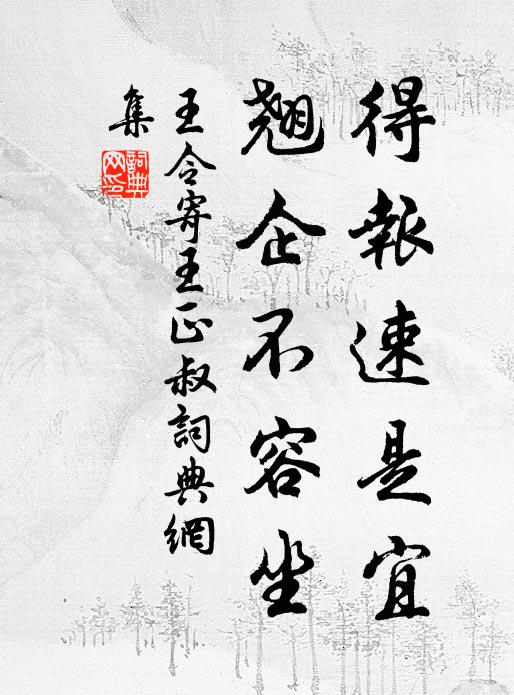 得報速是宜
翹企不容坐
王令寄王正叔詞典網
集
詞典網印